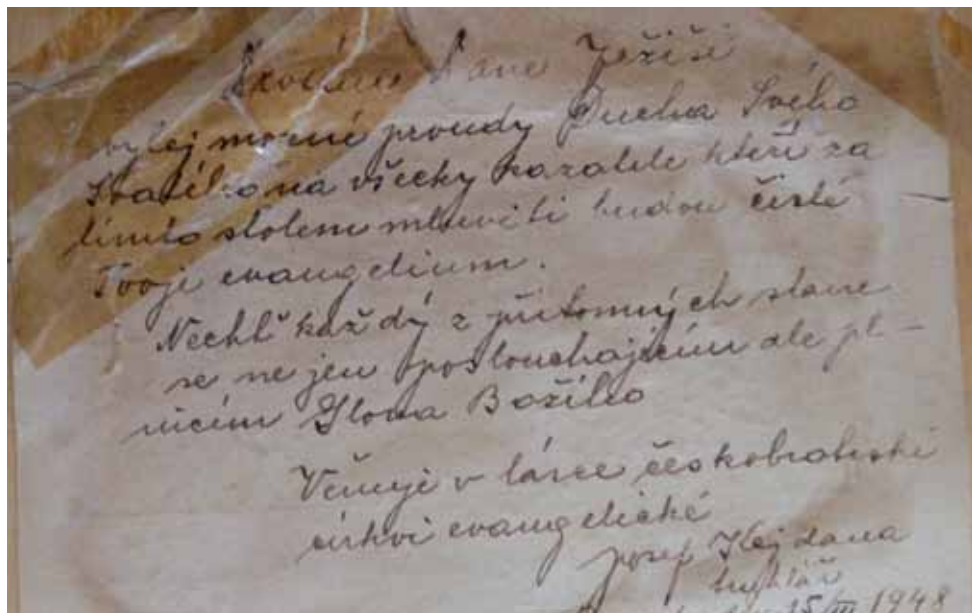 Pane Ježíši
vylej mocné proudy Ducha Svého
Svatého na všecky kazatele kteří za
tímto stolem mluviti budou čisté
Tvoje evangelium.
Nechť každý z přítomných stane
se ne jen poslouchajícím ale pl-
nicím Slova Božího
Věnuje v lásce českobratrské
církvi evangelické
Josef Hejdana
truhlář
15/III 1948